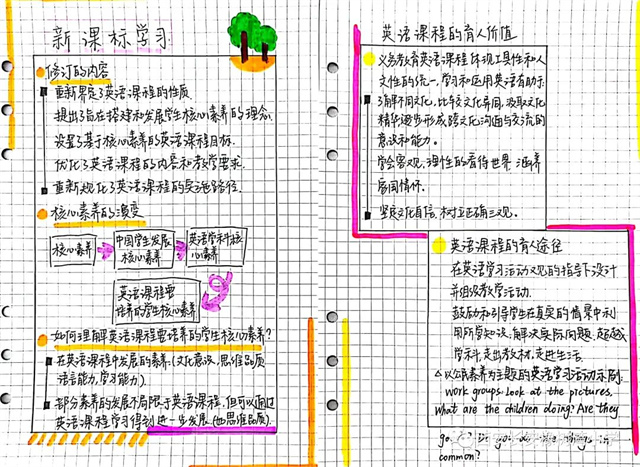 新课标学习
修订的内容
重新界定了英语课程的性质
提出了旨在培养和发展学生核心素养的理念.
设置了基于核心素养的英语课程目标.
优化了英语课程的内容和教学要求.
重新规化了英语课程的实施路径.
核心素养的演变
核心素养
中国学生发展
核心素养
英语学科核
心素养
英语课程要
培养的学生核心素养
如何理解英语课程要培养的学生核心素养?
在英语课程中发展的素养.(文化意识,思维品质
语言能力,学习能力).
部分素养的发展不局限于英语课程,但可以通过
英语课程学习得到进一步发展(如思维品质).
英语课程的育人价值
义务教育英语课程体现工具性和人
文性的统一,学习和运用英语有助于:
了解不同文化,比较文化异同,汲取文化
精华逐步形成跨文化沟通与交流的
意识和能力。
学会客观、理性的看待世界,涵养
家国情怀.
坚定文化自信,树立正确三观。
英语课程的育人途径
在英语学习活动观的指导下设计
并组织教学活动.
鼓励和引导学生在真实的情景中利
用所学知识,解决实际问题,超越
学科,走出教材,走进生活.
以公民素养为主题的英语学习活动示例:
work groups. Look at the pictures.
what are the children doing? Are they
common?